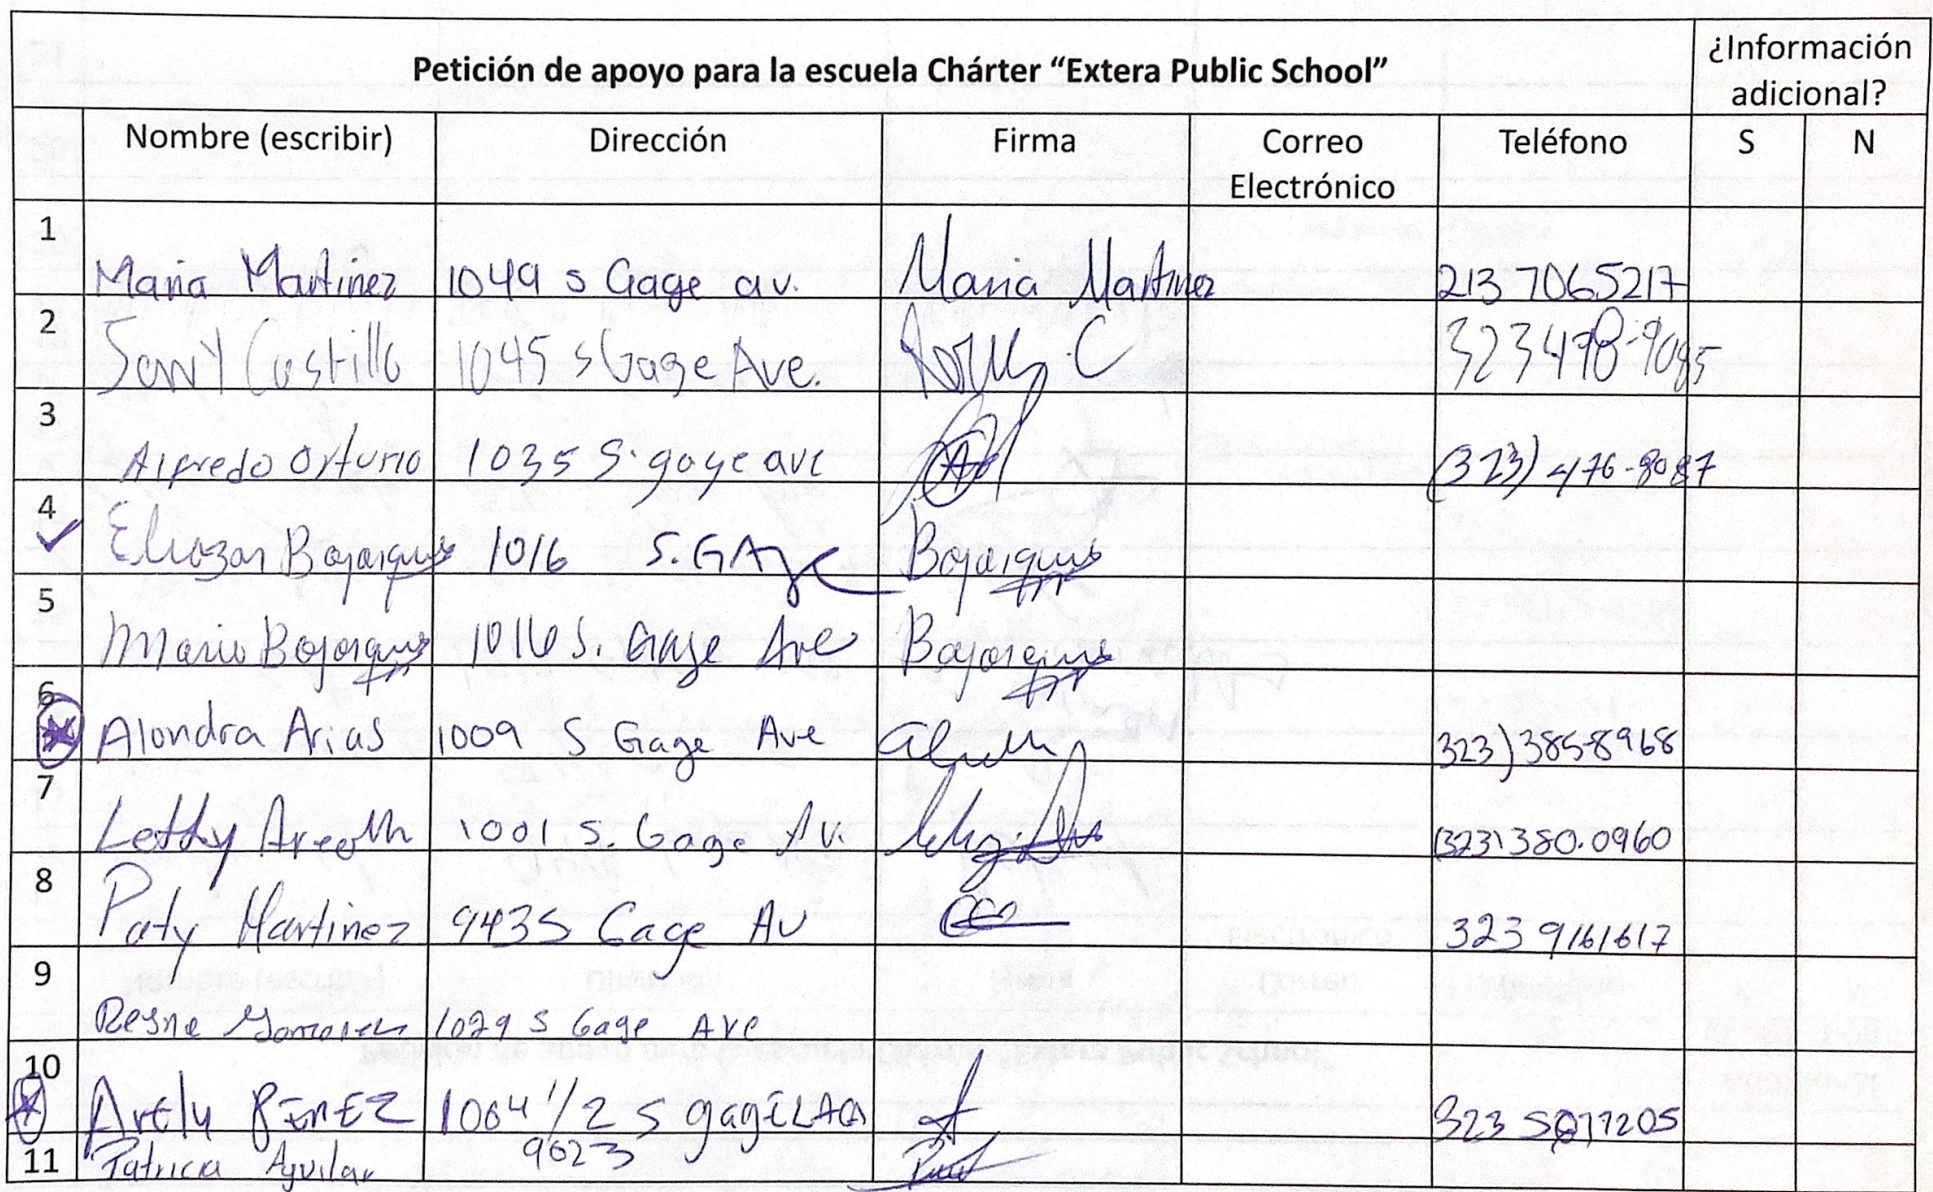 Petición de apoyo para la escuela Chárter “Extera Public School” ¿Información adicional?
Nombre (escribir) Dirección Firma Correo Electrónico Teléfono S N
1 Maria Martinez 1049 S Gage av. Maria Martinez 213 7065217
2 Castillo 1045 S Gage Ave. 323 498-9085
3 Alfredo Ortuno 1035 S. gage ave (323) 476-8087
4 Bojorques 1016 S. GAge Bojorques
5 Mario Bojorques 1016 S. Gage Ave Bojorques
6 Alondra Arias 1009 S Gage Ave 323) 385-8968
7 Letty 1001 S. Gage Av. (323) 380.0960
8 Paty Martinez 943 S Gage Av 323 9161617
9 1029 S Gage Ave
10 1064 1/2 S gage LA CA 323 5077205
11 Patricia Aguilar 9023